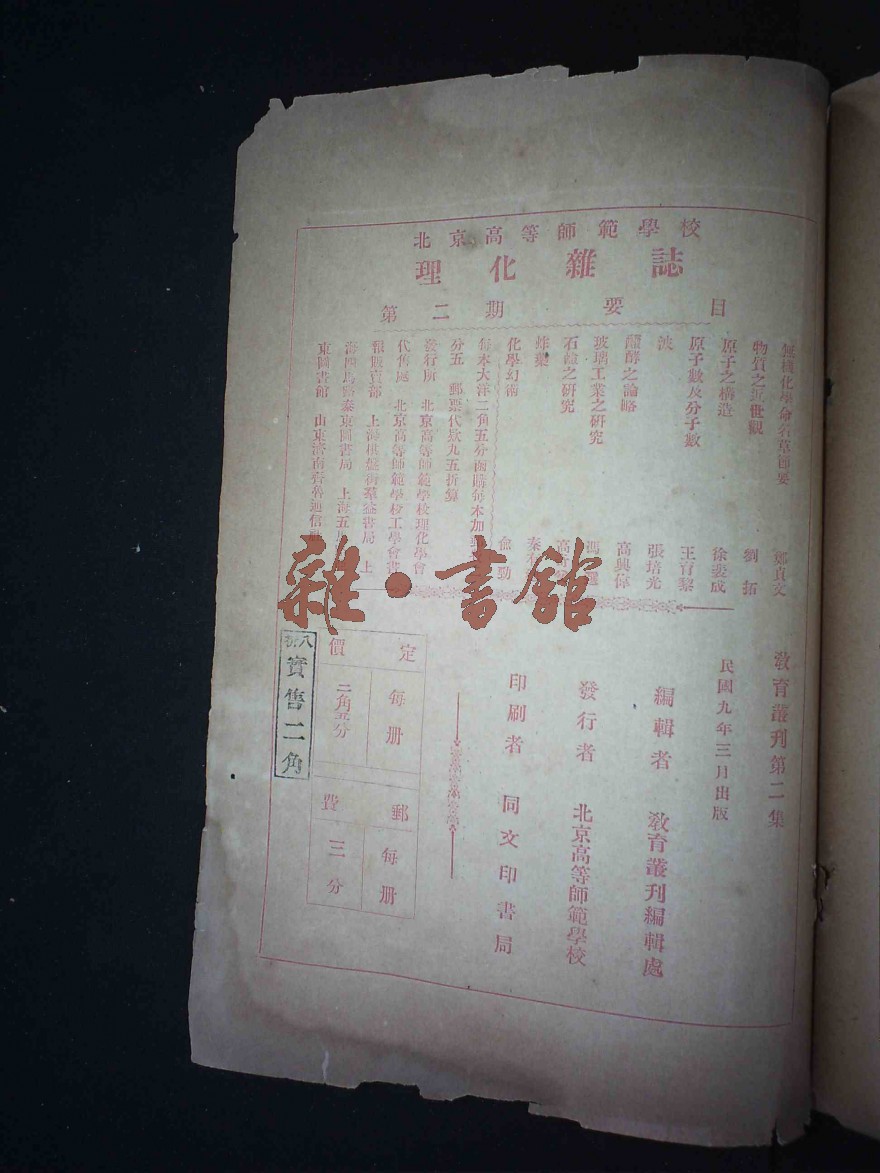 北京高等師範學校
理化雜誌
第二期要目
無機化學命名草節要 鄭貞文
物質之近世觀 劉拓
原子之構造 徐裴成
原子數及分子數 王育黎
波 張培光
醱酵之論略 高興偉
玻璃工業之研究 馮
石鹼之研究 高
炸藥 秦
化學幻術 俞勁
每本大洋二角五分函購每本加郵費
分五 郵票代欵九五折算
發行所 北京高等師範學校理化學會
代售處 北京高等師範學校工學會書
報販賣部 上海棋盤街羣益書局 上
海四馬路泰東圖書局 上海五馬
東圖書館 山東濟南齊魯通信社
教育叢刊第二集
民國九年三月出版
編輯者 教育叢刊編輯處
發行者 北京高等師範學校
印刷者 同文印書局
定價
每册
二角五分
郵費
每册
三分
八折
實售二角
雜·書館